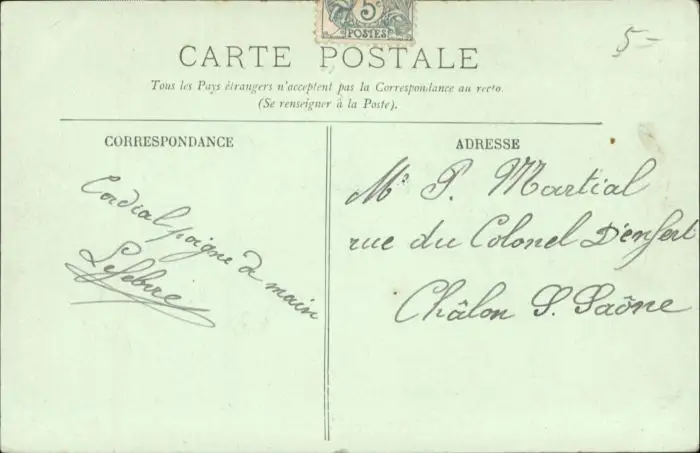 5c
POSTES
5-
CARTE POSTALE
Tous les Pays étrangers n'acceptent pas la Correspondance au recto.
(Se renseigner à la Poste).
CORRESPONDANCE
Cordial poigné de main
Lefebvre
ADRESSE
Mr P. Martial
rue du Colonel D'enfert
Châlon S. Saône